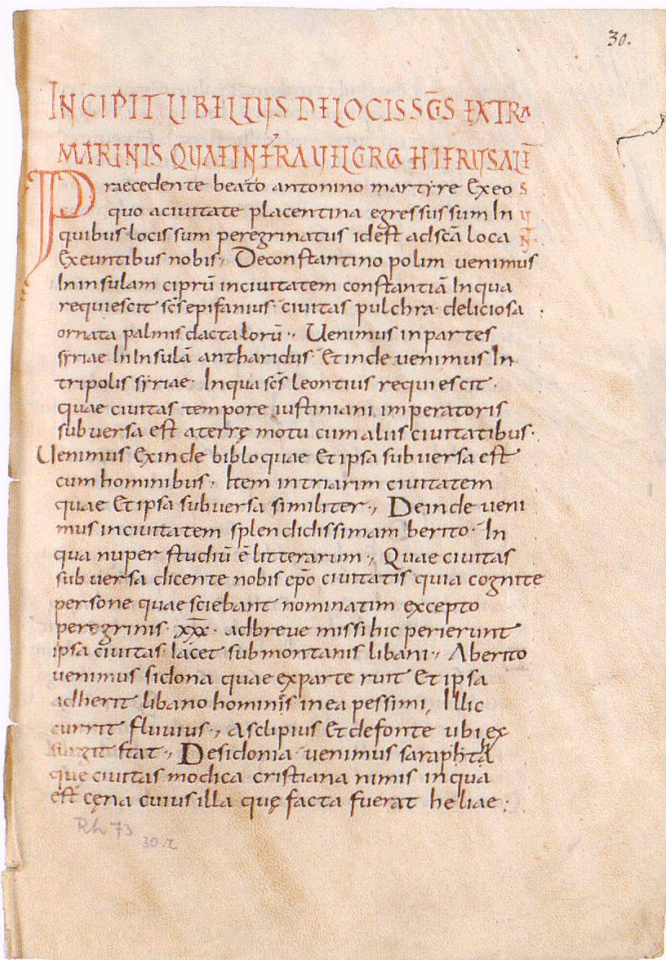 30.
INCIPIT LIBELLUS DE LOCIS SC̄S EXTRA
MARINIS
Praecedente beato antonino martyre Exeo
quo aciuitate placentina egressus sum In
quibus locis sum peregrinatus idest adscā loca
Exeuntibus nobis, Deconstantino polim uenimus
In insulam ciprū inciuitatem constantiā Inqua
requiescit scs epifanius· ciuitas pulchra· deliciosa
ornata palmis dactalorū· Uenimus inpartes
syriae In Insulā antharidus· Etinde uenimus In
tripolis syriae· Inqua scs leontius requiescit·
quae ciuitas tempore iustiniani imperatoris
subuersa est aterrę motu cum aliis ciuitatibus·
Uenimus exinde biblo quae Et ipsa subuersa est
cum hominibus, Item intriarim ciuitatem
quae Et ipsa subuersa similiter, Deinde ueni
mus inciuitatem splendidissimam berito· In
qua nuper studiū ē litterarum, Quae ciuitas
subuersa dicente nobis epō ciuitatis quia cognite
persone quae sciebant nominatim excepto
peregrinis xxx· adbreue missi hic perierunt
ipsa ciuitas Iacet sub montanis libani· Aberito
uenimus sidona quae exparte ruit Et ipsa
adherit libano hominis inea pessimi, Illic
currit fluuius, Asclipius Et defonte ubi ex
surgit stat, Desidonia uenimus saraphta
que ciuitas modica cristiana nimis inqua
est cęna cuius illa quę facta fuerat heliae·
Rh 73
30 r